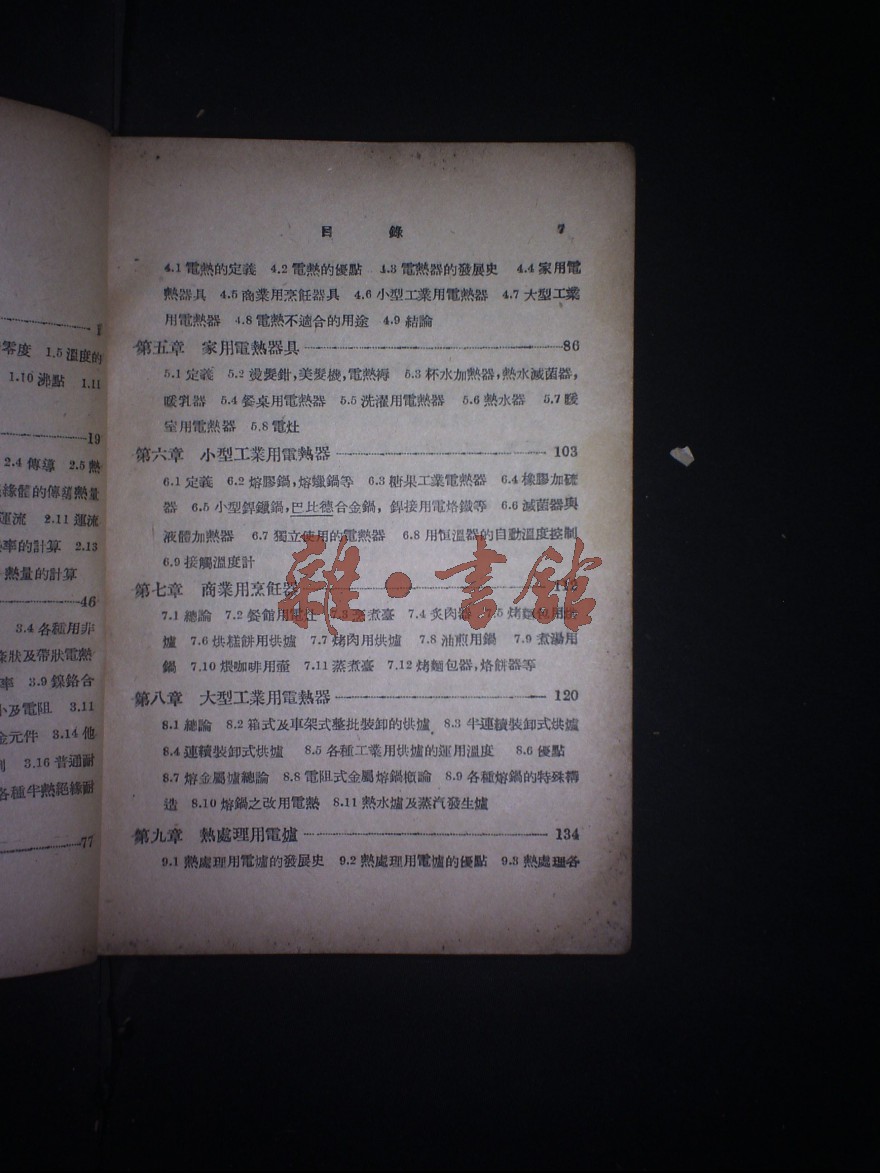 1
零度 1.5 溫度的
1.10 沸點 1.11
19
2.4 傳導 2.5 熱
緣體的傳導熱量
運流 2.11 運流
率的計算 2.13
熱量的計算
46
3.4 各種用非
條狀及帶狀電熱
率 3.9 鎳鉻合
小及電阻 3.11
金元件 3.14 他
3.16 普通耐
各種半熱絕緣耐
77
目 錄 7
4.1 電熱的定義 4.2 電熱的優點 4.3 電熱器的發展史 4.4 家用電
熱器具 4.5 商業用烹飪器具 4.6 小型工業用電熱器 4.7 大型工業
用電熱器 4.8 電熱不適合的用途 4.9 結論
第五章 家用電熱器具 86
5.1 定義 5.2 燙髮鉗,美髮機,電熱褥 5.3 杯水加熱器,熱水滅菌器,
暖乳器 5.4 餐桌用電熱器 5.5 洗濯用電熱器 5.6 熱水器 5.7 暖
室用電熱器 5.8 電灶
第六章 小型工業用電熱器 103
6.1 定義 6.2 熔膠鍋,熔蠟鍋等 6.3 糖果工業電熱器 6.4 橡膠加硫
器 6.5 小型銲鑞鍋,巴比德合金鍋, 銲接用電烙鐵等 6.6 滅菌器與
液體加熱器 6.7 獨立使用的電熱器 6.8 用恒溫器的自動溫度控制
6.9 接觸溫度計
第七章 商業用烹飪器 112
7.1 總論 7.2 餐館用電灶 7.3 烹煮臺 7.4 炙肉器 7.5 烤麵包用烘
爐 7.6 烘糕餅用烘爐 7.7 烤肉用烘爐 7.8 油煎用鍋 7.9 煮湯用
鍋 7.10 煨咖啡用壺 7.11 蒸煮臺 7.12 烤麵包器,烙餅器等
第八章 大型工業用電熱器 120
8.1 總論 8.2 箱式及車架式整批裝卸的烘爐 8.3 半連續裝卸式烘爐
8.4 連續裝卸式烘爐 8.5 各種工業用烘爐的運用溫度 8.6 優點
8.7 熔金屬爐總論 8.8 電阻式金屬熔鍋概論 8.9 各種熔鍋的特殊構
造 8.10 熔鍋之改用電熱 8.11 熱水爐及蒸汽發生爐
第九章 熱處理用電爐 134
9.1 熱處理用電爐的發展史 9.2 熱處理用電爐的優點 9.3 熱處理各
雜·書館